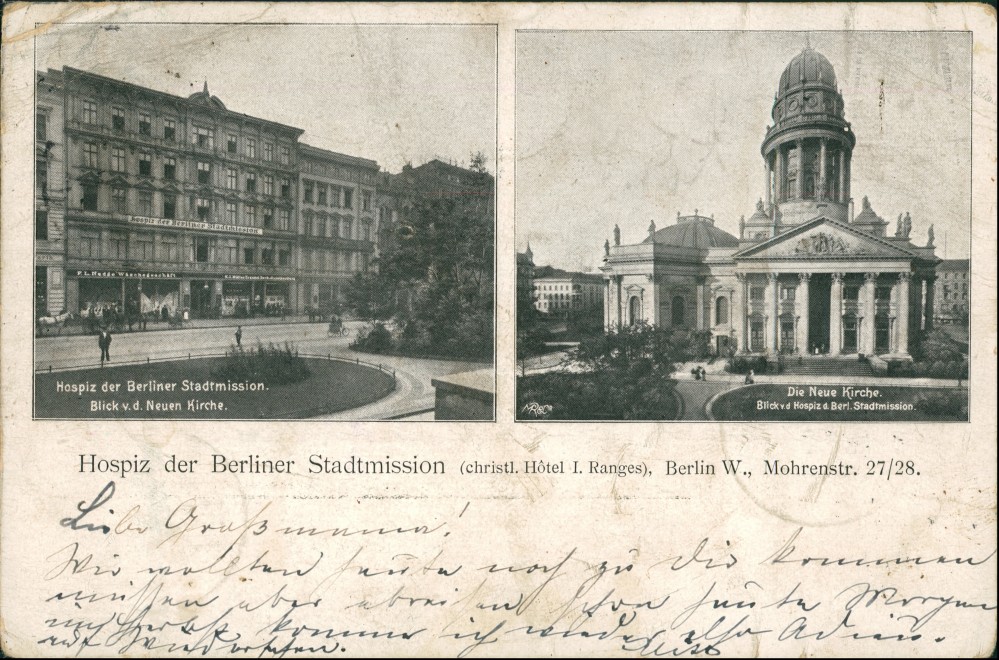 Hospiz der Berliner Stadtmission
P. L. Hadde Wäschegeschäft
Hospiz der Berliner Stadtmission.
Blick v. d. Neuen Kirche.
Die Neue Kirche.
Blick v. d Hospiz d. Berl. Stadtmission.
Hospiz der Berliner Stadtmission (christl. Hôtel I. Ranges), Berlin W., Mohrenstr. 27/28.
Liebe Großmama!
Wir wollten heute noch zu Dir kommen
müssen aber abreisen schon heute Morgen
im Herbst komme ich wieder also Adieu.
auf Wiedersehen.